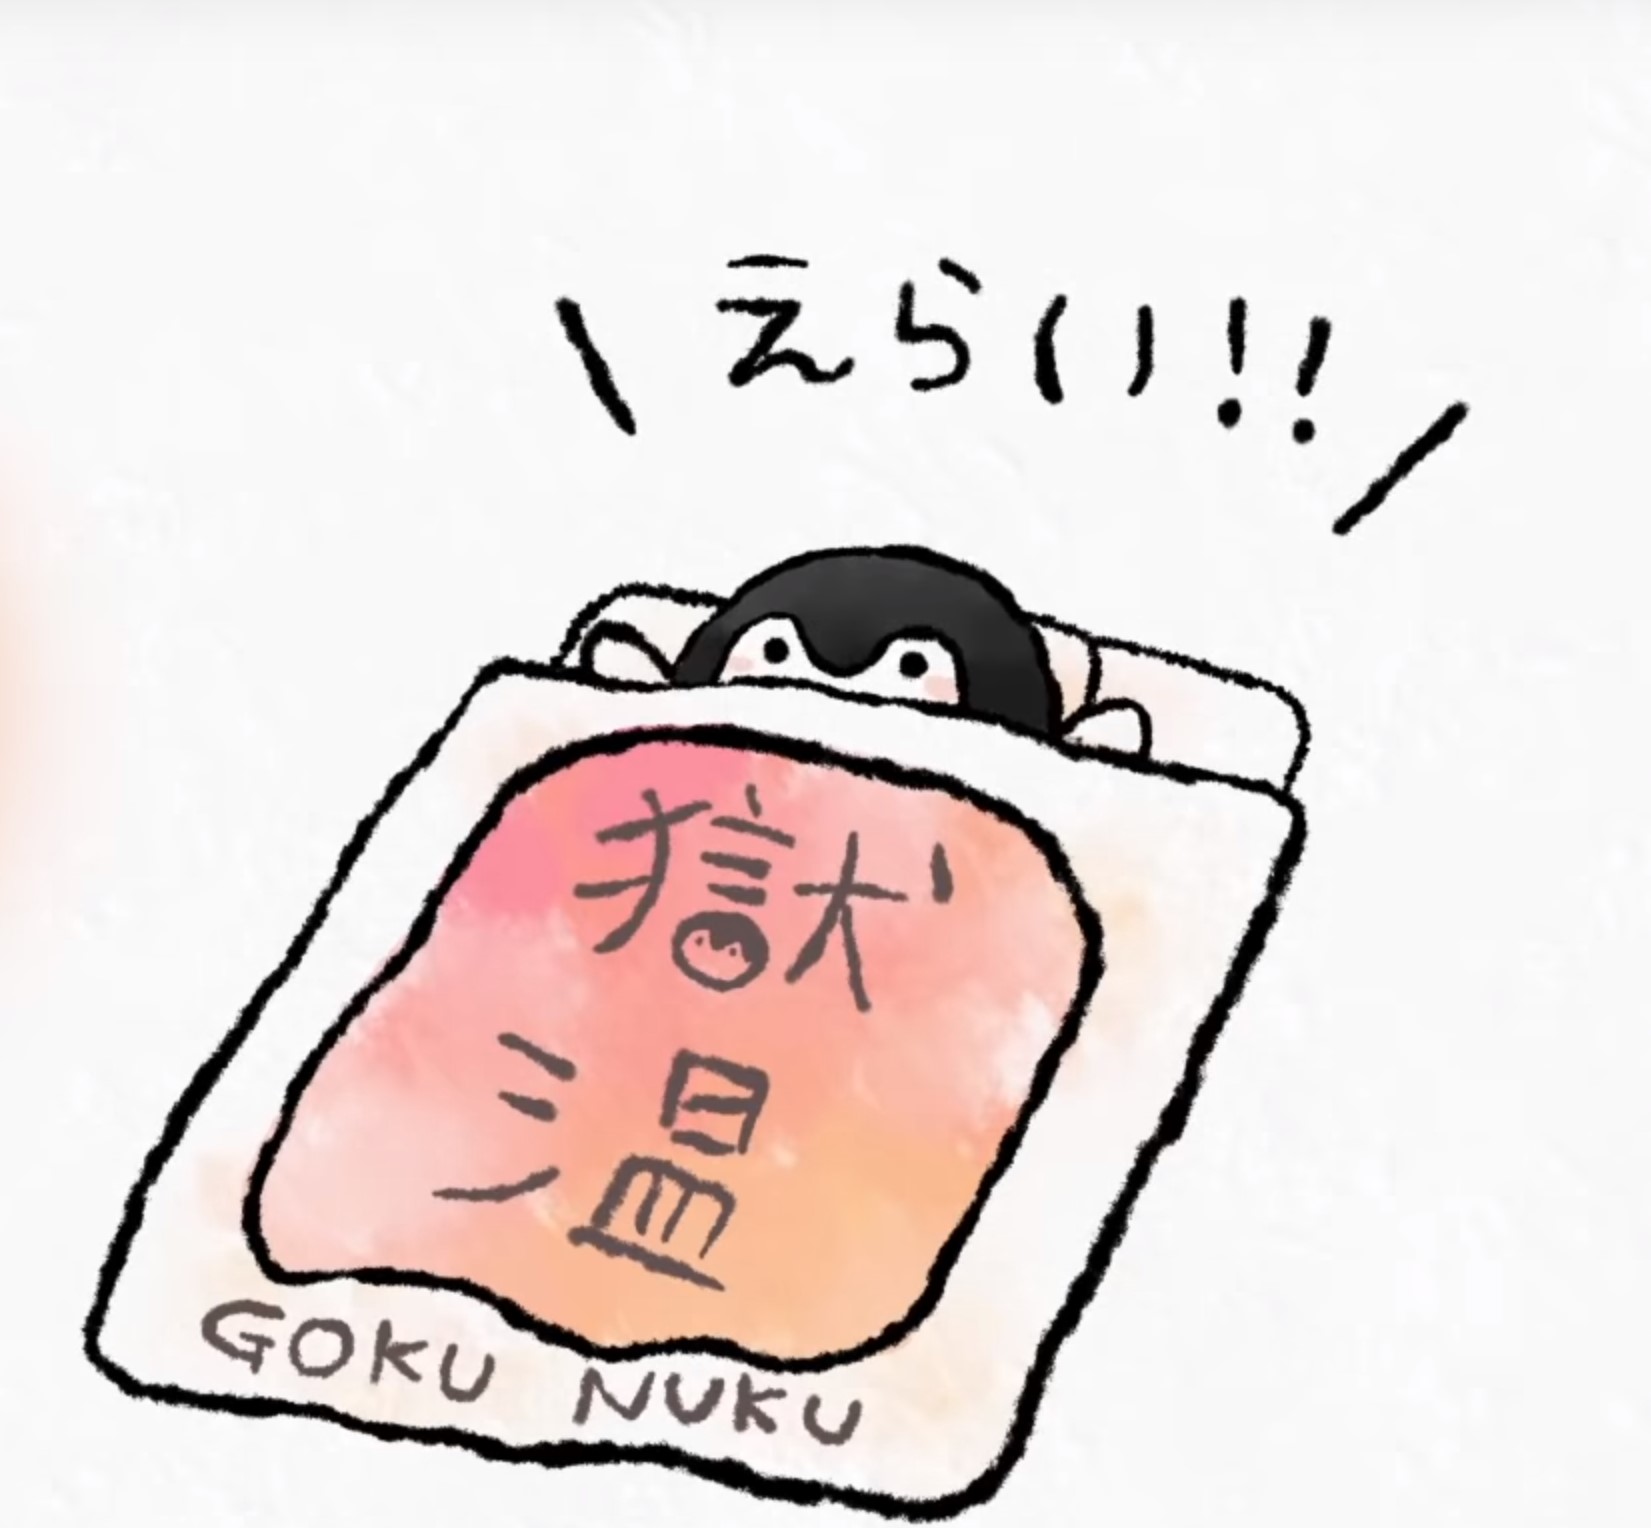 えらい!!
獄
温
GOKU NUKU